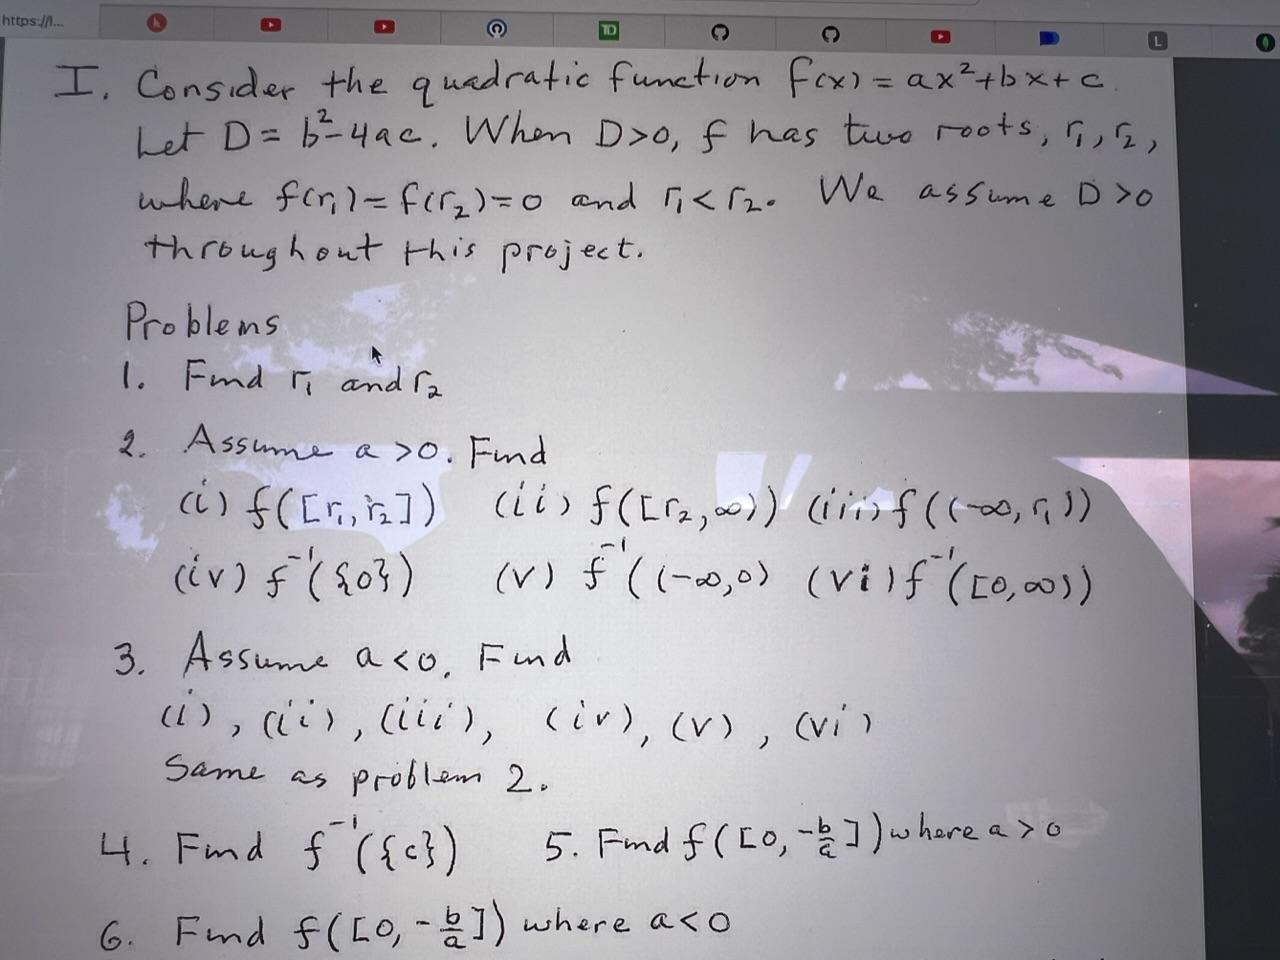 https://l...
TD
L
I. Consider the quadratic function f(x) = ax²+bx+c.
Let D = b²-4ac. When D>0, f has two roots, r₁, r₂,
where f(r₁) = f(r₂) = 0 and r₁ < r₂. We assume D>0
throughout this project.
Problems
1. Find r₁ and r₂
2. Assume a >0. Find
(i) f([r₁, r₂]) (ii) f([r₂, ∞)) (iii) f((-∞, r₁))
(iv) f⁻¹({0}) (v) f⁻¹((-∞,0) (vi) f⁻¹([0,∞))
3. Assume a<0. Find
(i), (ii), (iii), (iv), (v), (vi)
Same as problem 2.
4. Find f⁻¹({c}) 5. Find f([0, -b/a]) where a>0
6. Find f([0, -b/a]) where a<0